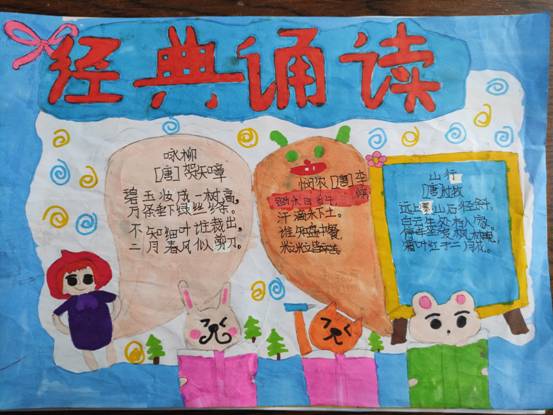 经典诵读
咏柳
[唐]贺知章
碧玉妆成一树高,
万条垂下绿丝绦。
不知细叶谁裁出,
二月春风似剪刀。
悯农[唐]李绅
锄禾日当午
汗滴禾下土。
谁知盘中餐,
粒粒皆辛苦。
山行
[唐]杜牧
远上寒山石径斜,
白云生处有人家。
停车坐爱枫林晚,
霜叶红于二月花。